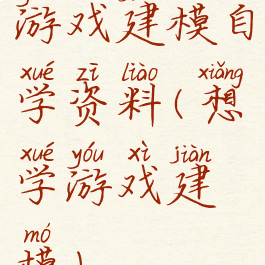 游戏建模自
xué zī liào xiǎng
学资料(想
xué yóu xì jiàn
学游戏建
mó
模)